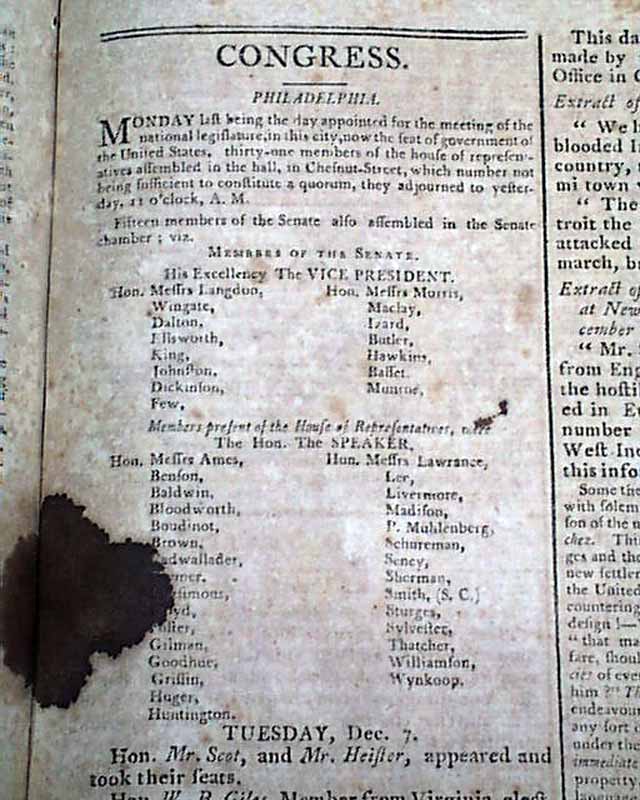 CONGRESS.
PHILADELPHIA.
MONDAY laſt being the day appointed for the meeting of the
national legiſlature, in this city, now the ſeat of government of
the United States, thirty-one members of the houſe of repreſen-
atives aſſembled in the hall, in Cheſnut-Street, which number not
being ſufficient to conſtitute a quorum, they adjourned to yeſter-
day, 11 o'clock, A. M.
Fifteen members of the Senate alſo aſſembled in the Senate
chamber; viz.
MEMBERS OF THE SENATE.
His Excellency The VICE PRESIDENT.
Hon. Meſſrs Langdon,
Wingate,
Dalton,
Ellsworth,
King,
Johnſton,
Dickinſon,
Few,
Hon. Meſſrs Morris,
Maclay,
Izard,
Butler,
Hawkins,
Baſſet.
Munroe,
Members preſent of the Houſe of Repreſentatives, were
The Hon. The SPEAKER,
Hon. Meſſrs Ames,
Benſon,
Baldwin,
Bloodworth,
Boudinot,
Brown,
adwallader,
ymer.
ſimons,
yd,
oſter,
Gilman,
Goodhue,
Griffin,
Huger,
Huntington.
Hon. Meſſrs Lawrance,
Lee,
Livermore,
Madiſon,
P. Muhlenberg,
Schureman,
Seney,
Sherman,
Smith, (S. C.)
Sturges,
Sylveſter,
Thatcher,
Williamſon,
Wynkoop.
TUESDAY, Dec. 7.
Hon. Mr. Scot, and Mr. Heiſter, appeared and
took their ſeats.
Hon. W. B. Giles, Member from Virginia,
This da
made by
Office in C
Extract of
" We h
blooded In
country,
mi town
" The
troit the
attacked
march, b
Extract of
at New
cember
" Mr.
from Eng
the hoſti
ed in Eu
number
Weſt-In
this info
Some the
with ſolem
ſon of the
chez. Thi
ges and th
new ſettler
the United
countering
deſign!—
"that ma
fare, ſhoul
cies of eve
him?" Th
endeavour
any ſort
under the
immediate
property
language